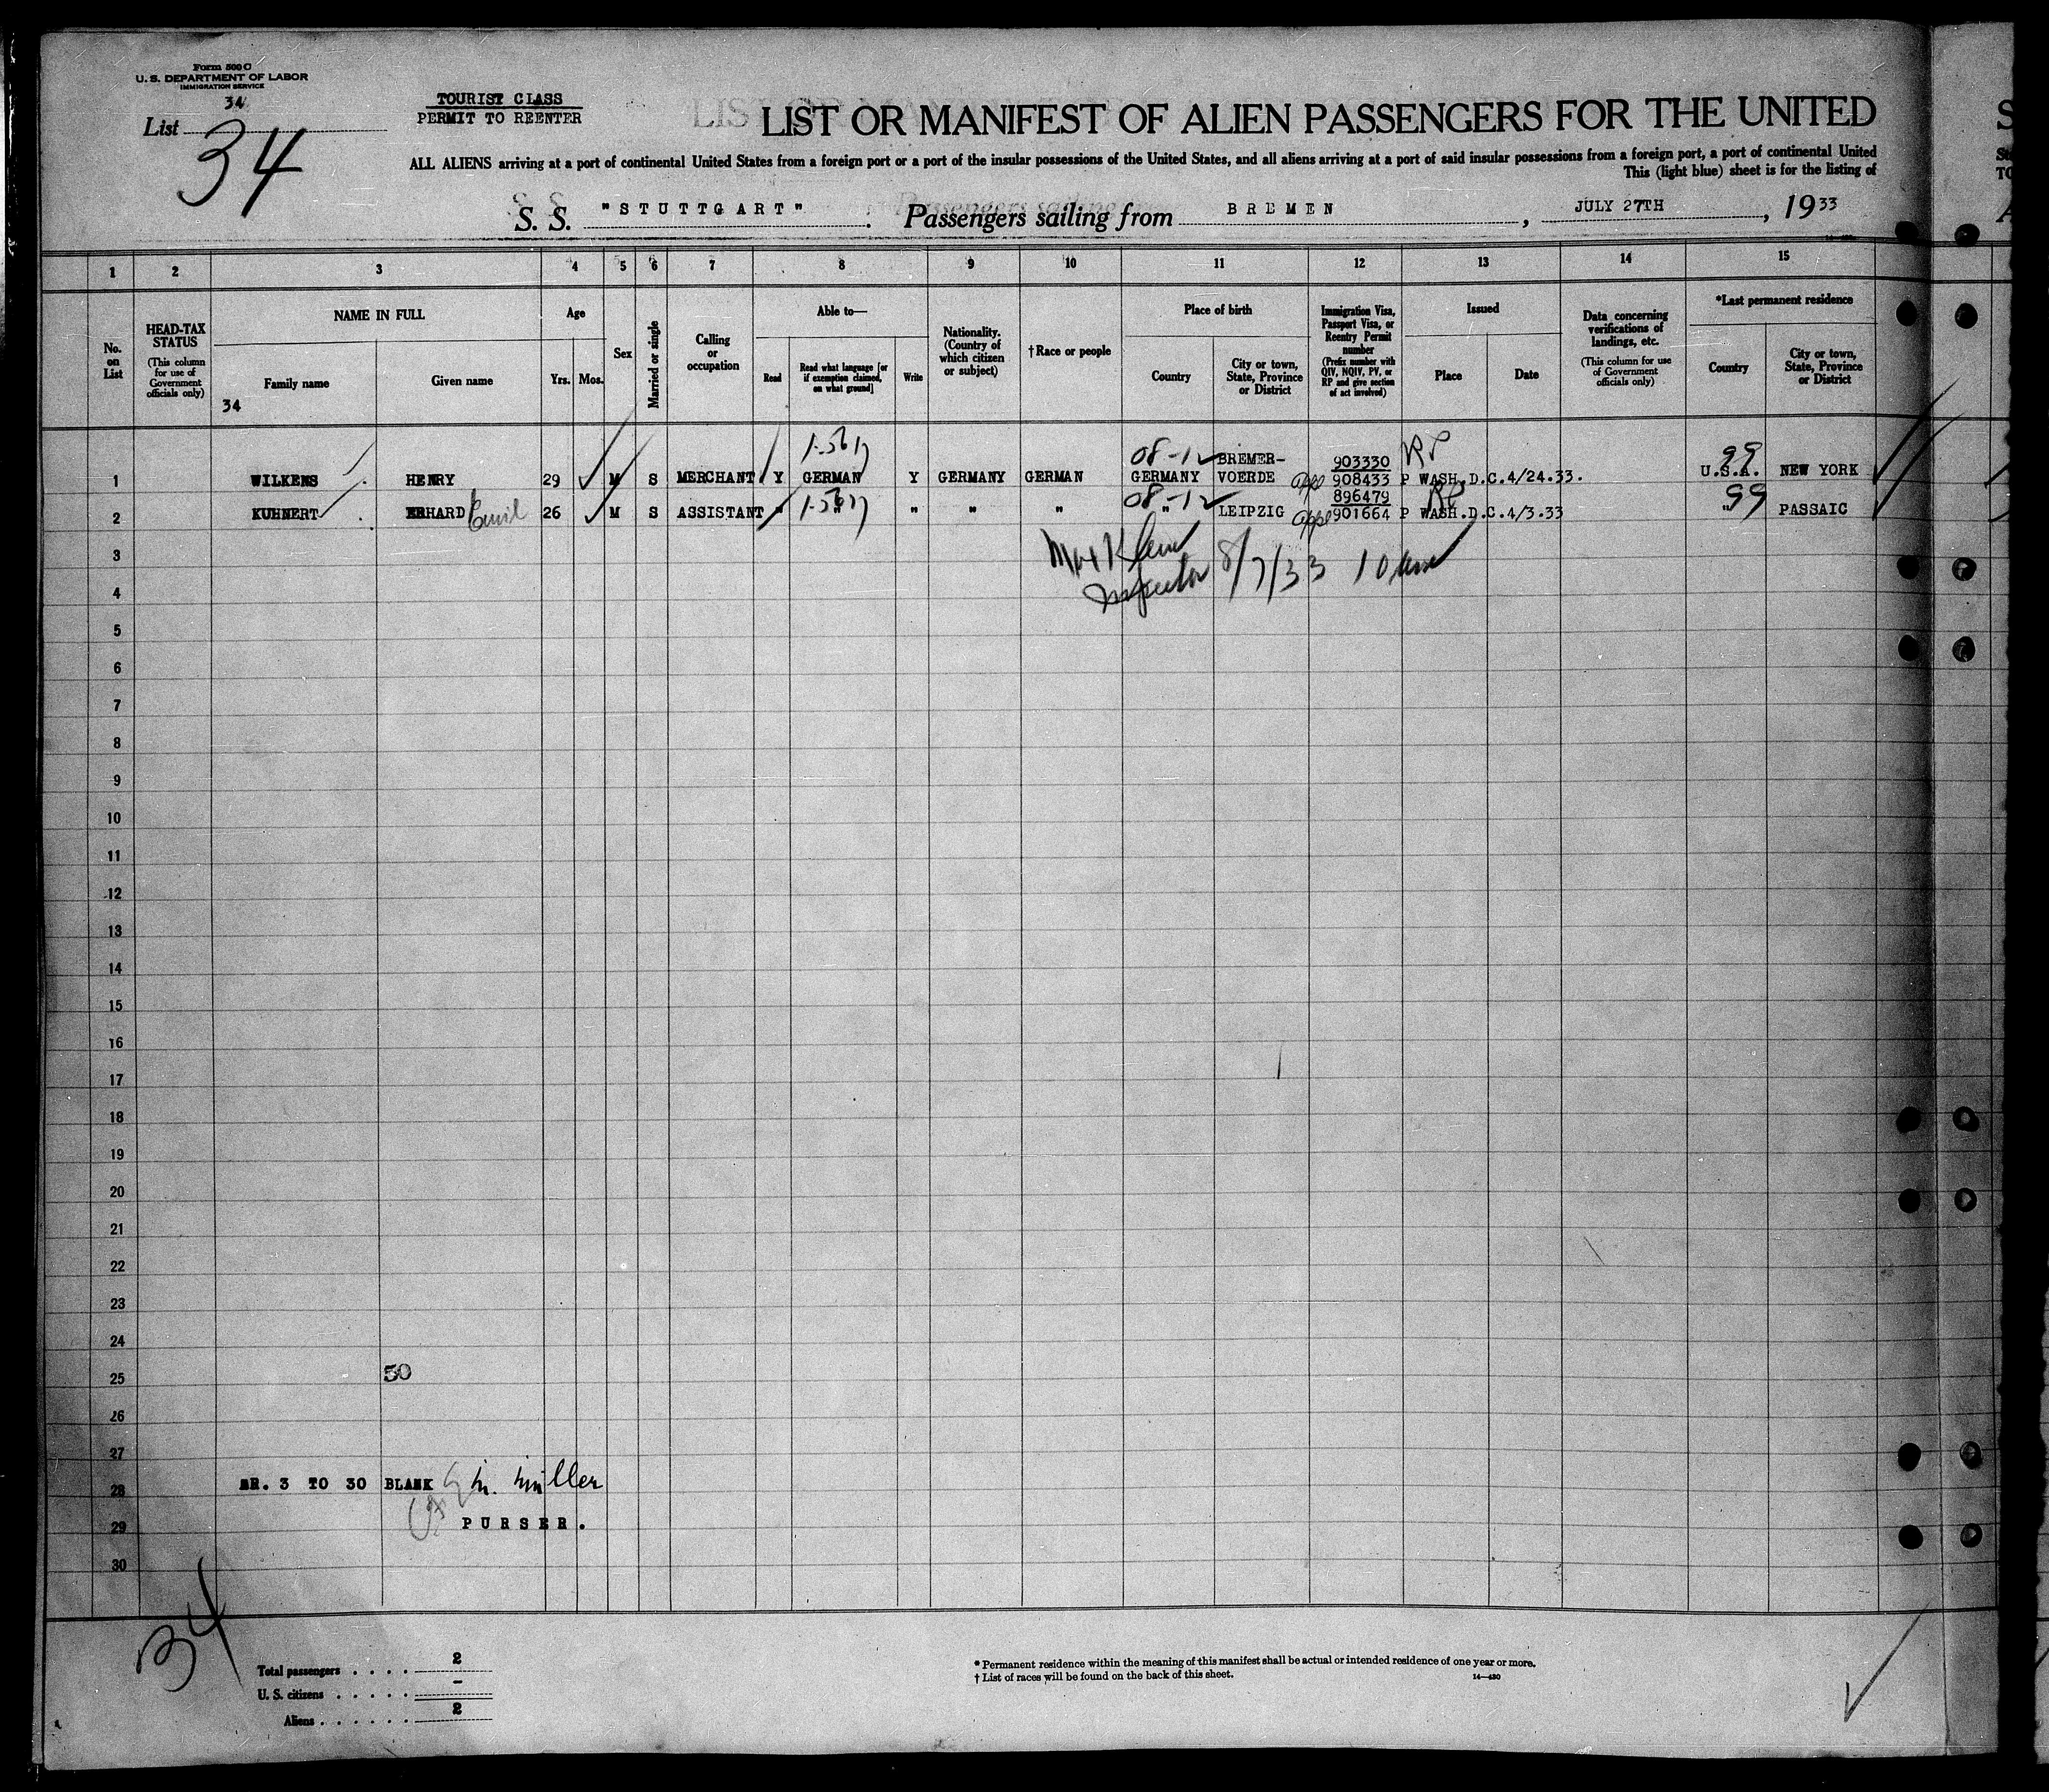 Form 500 C
U. S. DEPARTMENT OF LABOR
IMMIGRATION SERVICE
34
List
34
TOURIST CLASS
PERMIT TO REENTER
LIST OR MANIFEST OF ALIEN PASSENGERS FOR THE UNITED
ALL ALIENS arriving at a port of continental United States from a foreign port or a port of the insular possessions of the United States, and all aliens arriving at a port of said insular possessions from a foreign port, a port of continental United
This (light blue) sheet is for the listing of
S. S. "STUTTGART". Passengers sailing from BREMEN, JULY 27TH, 1933
1 2 3 4 5 6 7 8 9 10 11 12 13 14 15
No. on List
HEAD-TAX STATUS
(This column for use of Government officials only)
NAME IN FULL
Family name
Given name
34
Age
Yrs. Mos.
Sex
Married or single
Calling or occupation
Able to—
Read
Read what language [or if exemption claimed, on what ground]
Write
Nationality. (Country of which citizen or subject)
†Race or people
Place of birth
Country
City or town, State, Province or District
Immigration Visa, Passport Visa, or Reentry Permit number
(Prefix number with QIV, NQIV, PV, or RP and give section of act involved)
Issued
Place
Date
Data concerning verifications of landings, etc.
(This column for use of Government officials only)
*Last permanent residence
Country
City or town, State, Province or District
1-5617 08-12 BREMER- 903330 RP 99
1 WILKENS HENRY 29 M S MERCHANT Y GERMAN Y GERMANY GERMAN GERMANY VOERDE 908433 P WASH.D.C.4/24.33. U.S.A. NEW YORK
1-5617 08-12 896479 RP 99
2 KUHNERT ERHARD Emil 26 M S ASSISTANT " " " " " " LEIPZIG 901664 P WASH.D.C.4/3.33 " PASSAIC
Max Klein
Inspector 8/7/33 10 am
3
4
5
6
7
8
9
10
11
12
13
14
15
16
17
18
19
20
21
22
23
24
50
25
26
27
NR. 3 TO 30 BLANK Müller
28
PURSER.
29
30
34
Total passengers . . . . 2
U. S. citizens . . . . . -
Aliens . . . . . . 2
* Permanent residence within the meaning of this manifest shall be actual or intended residence of one year or more.
† List of races will be found on the back of this sheet.
14—480